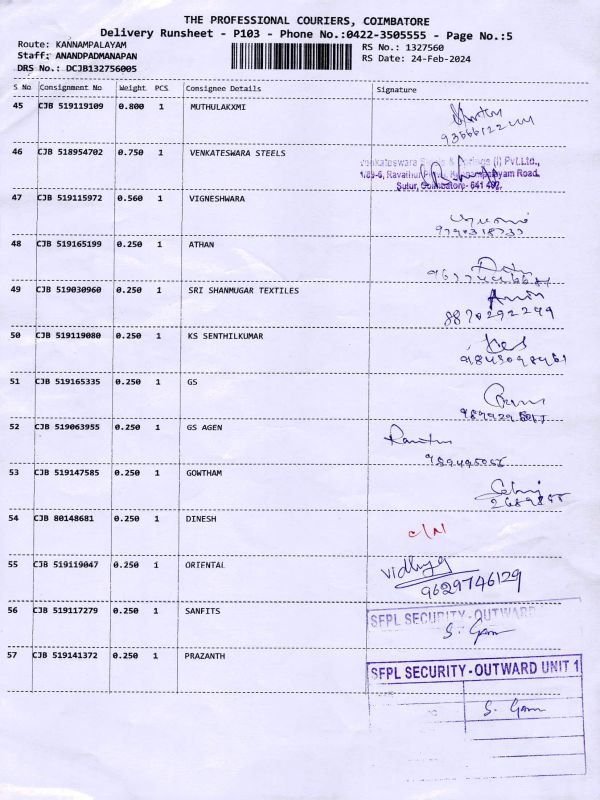 THE PROFESSIONAL COURIERS, COIMBATORE
Delivery Runsheet - P103 - Phone No.:0422-3505555 - Page No.:5
Route: KANNAMPALAYAM
RS No.: 1327560
Staff: ANANDPADMANAPAN
RS Date: 24-Feb-2024
DRS No.: DCJB132756005
S No Consignment No Weight PCS Consignee Details Signature
45 CJB 519119109 0.800 1 MUTHULAKXMI
46 CJB 518954702 0.750 1 VENKATESWARA STEELS
Venkateswara Steels & Springs (I) Pvt.Ltd.,
Sulur, Coimbatore- 641 402.
47 CJB 519115972 0.560 1 VIGNESHWARA
48 CJB 519165199 0.250 1 ATHAN
49 CJB 519030960 0.250 1 SRI SHANMUGAR TEXTILES
8870292299
50 CJB 519119080 0.250 1 KS SENTHILKUMAR
51 CJB 519165335 0.250 1 GS
52 CJB 519063955 0.250 1 GS AGEN
53 CJB 519147585 0.250 1 GOWTHAM
54 CJB 80148681 0.250 1 DINESH
C/N
55 CJB 519119047 0.250 1 ORIENTAL
Vidhya
9629746129
56 CJB 519117279 0.250 1 SANFITS
SFPL SECURITY-OUTWARD
57 CJB 519141372 0.250 1 PRAZANTH
SFPL SECURITY-OUTWARD UNIT 1